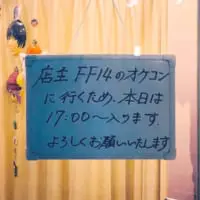 店主 FF14のオケコン
に行くため、本日は
17:00〜入ります。
よろしくお願いいたします